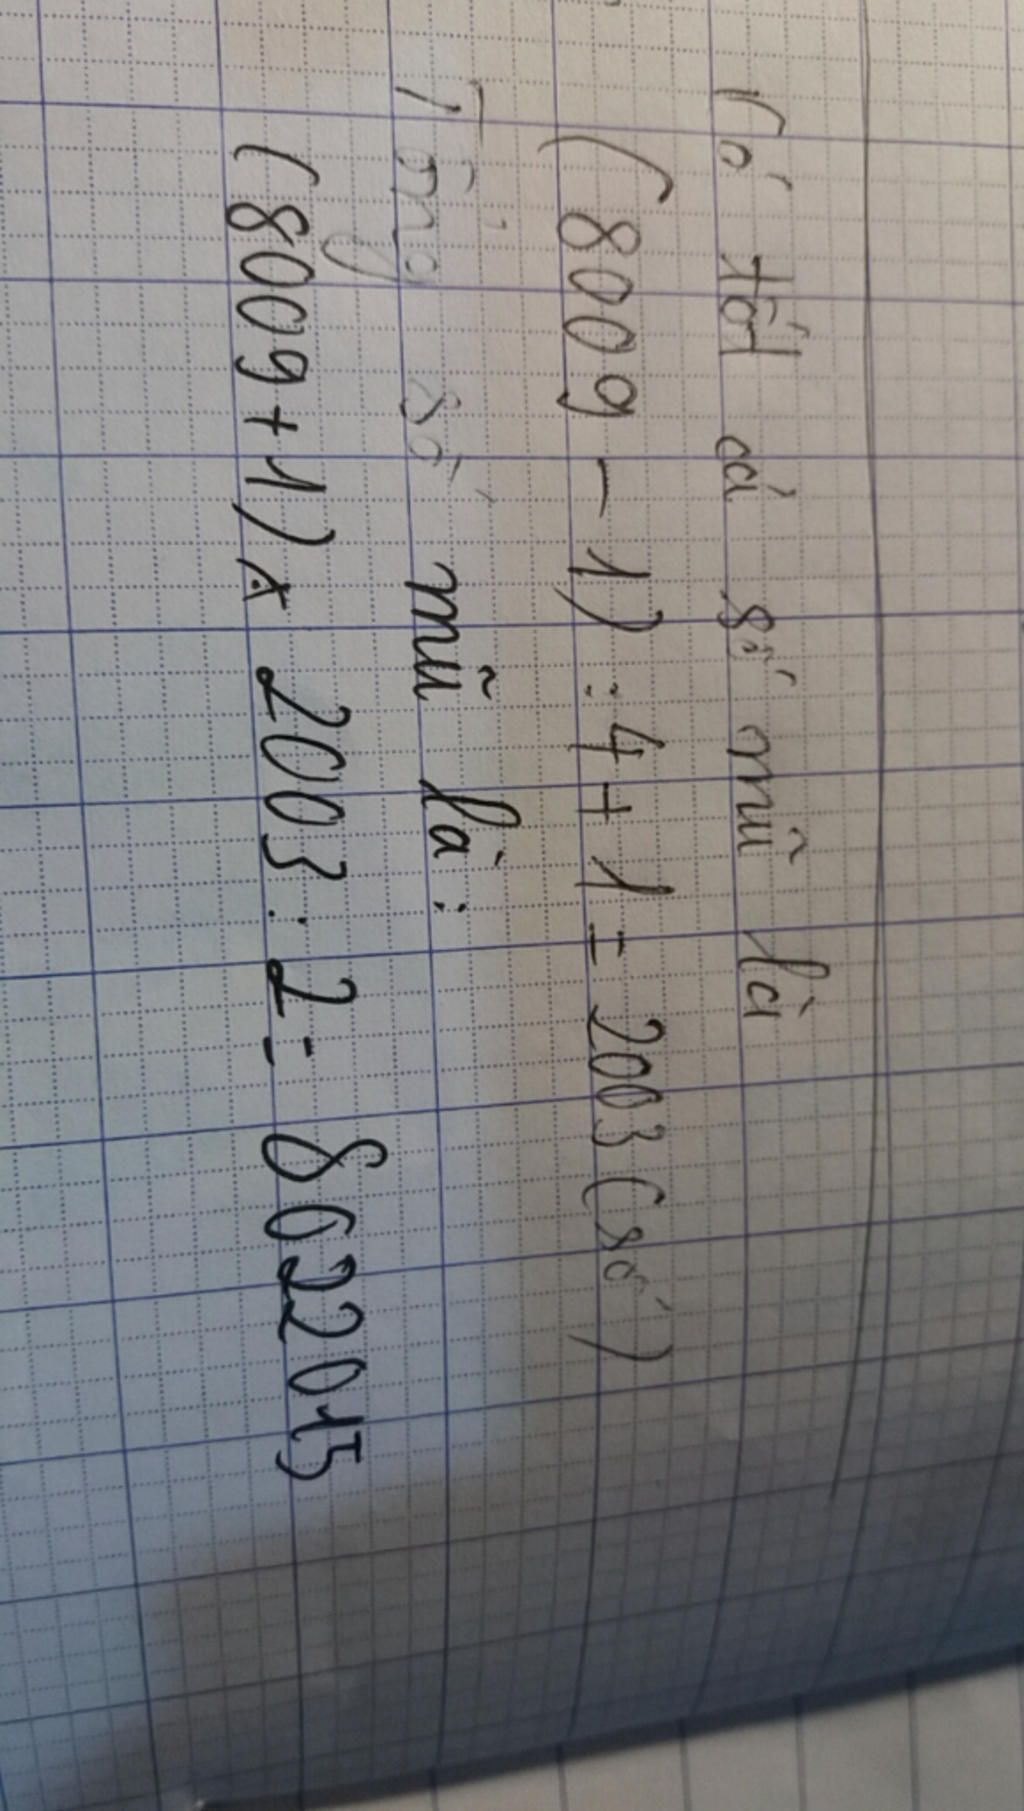 Có tất cả số mũ là
(8009 - 1) : 4 + 1 = 2003 (số)
Tổng số mũ là :
(8009 + 1) x 2003 : 2 = 8022015